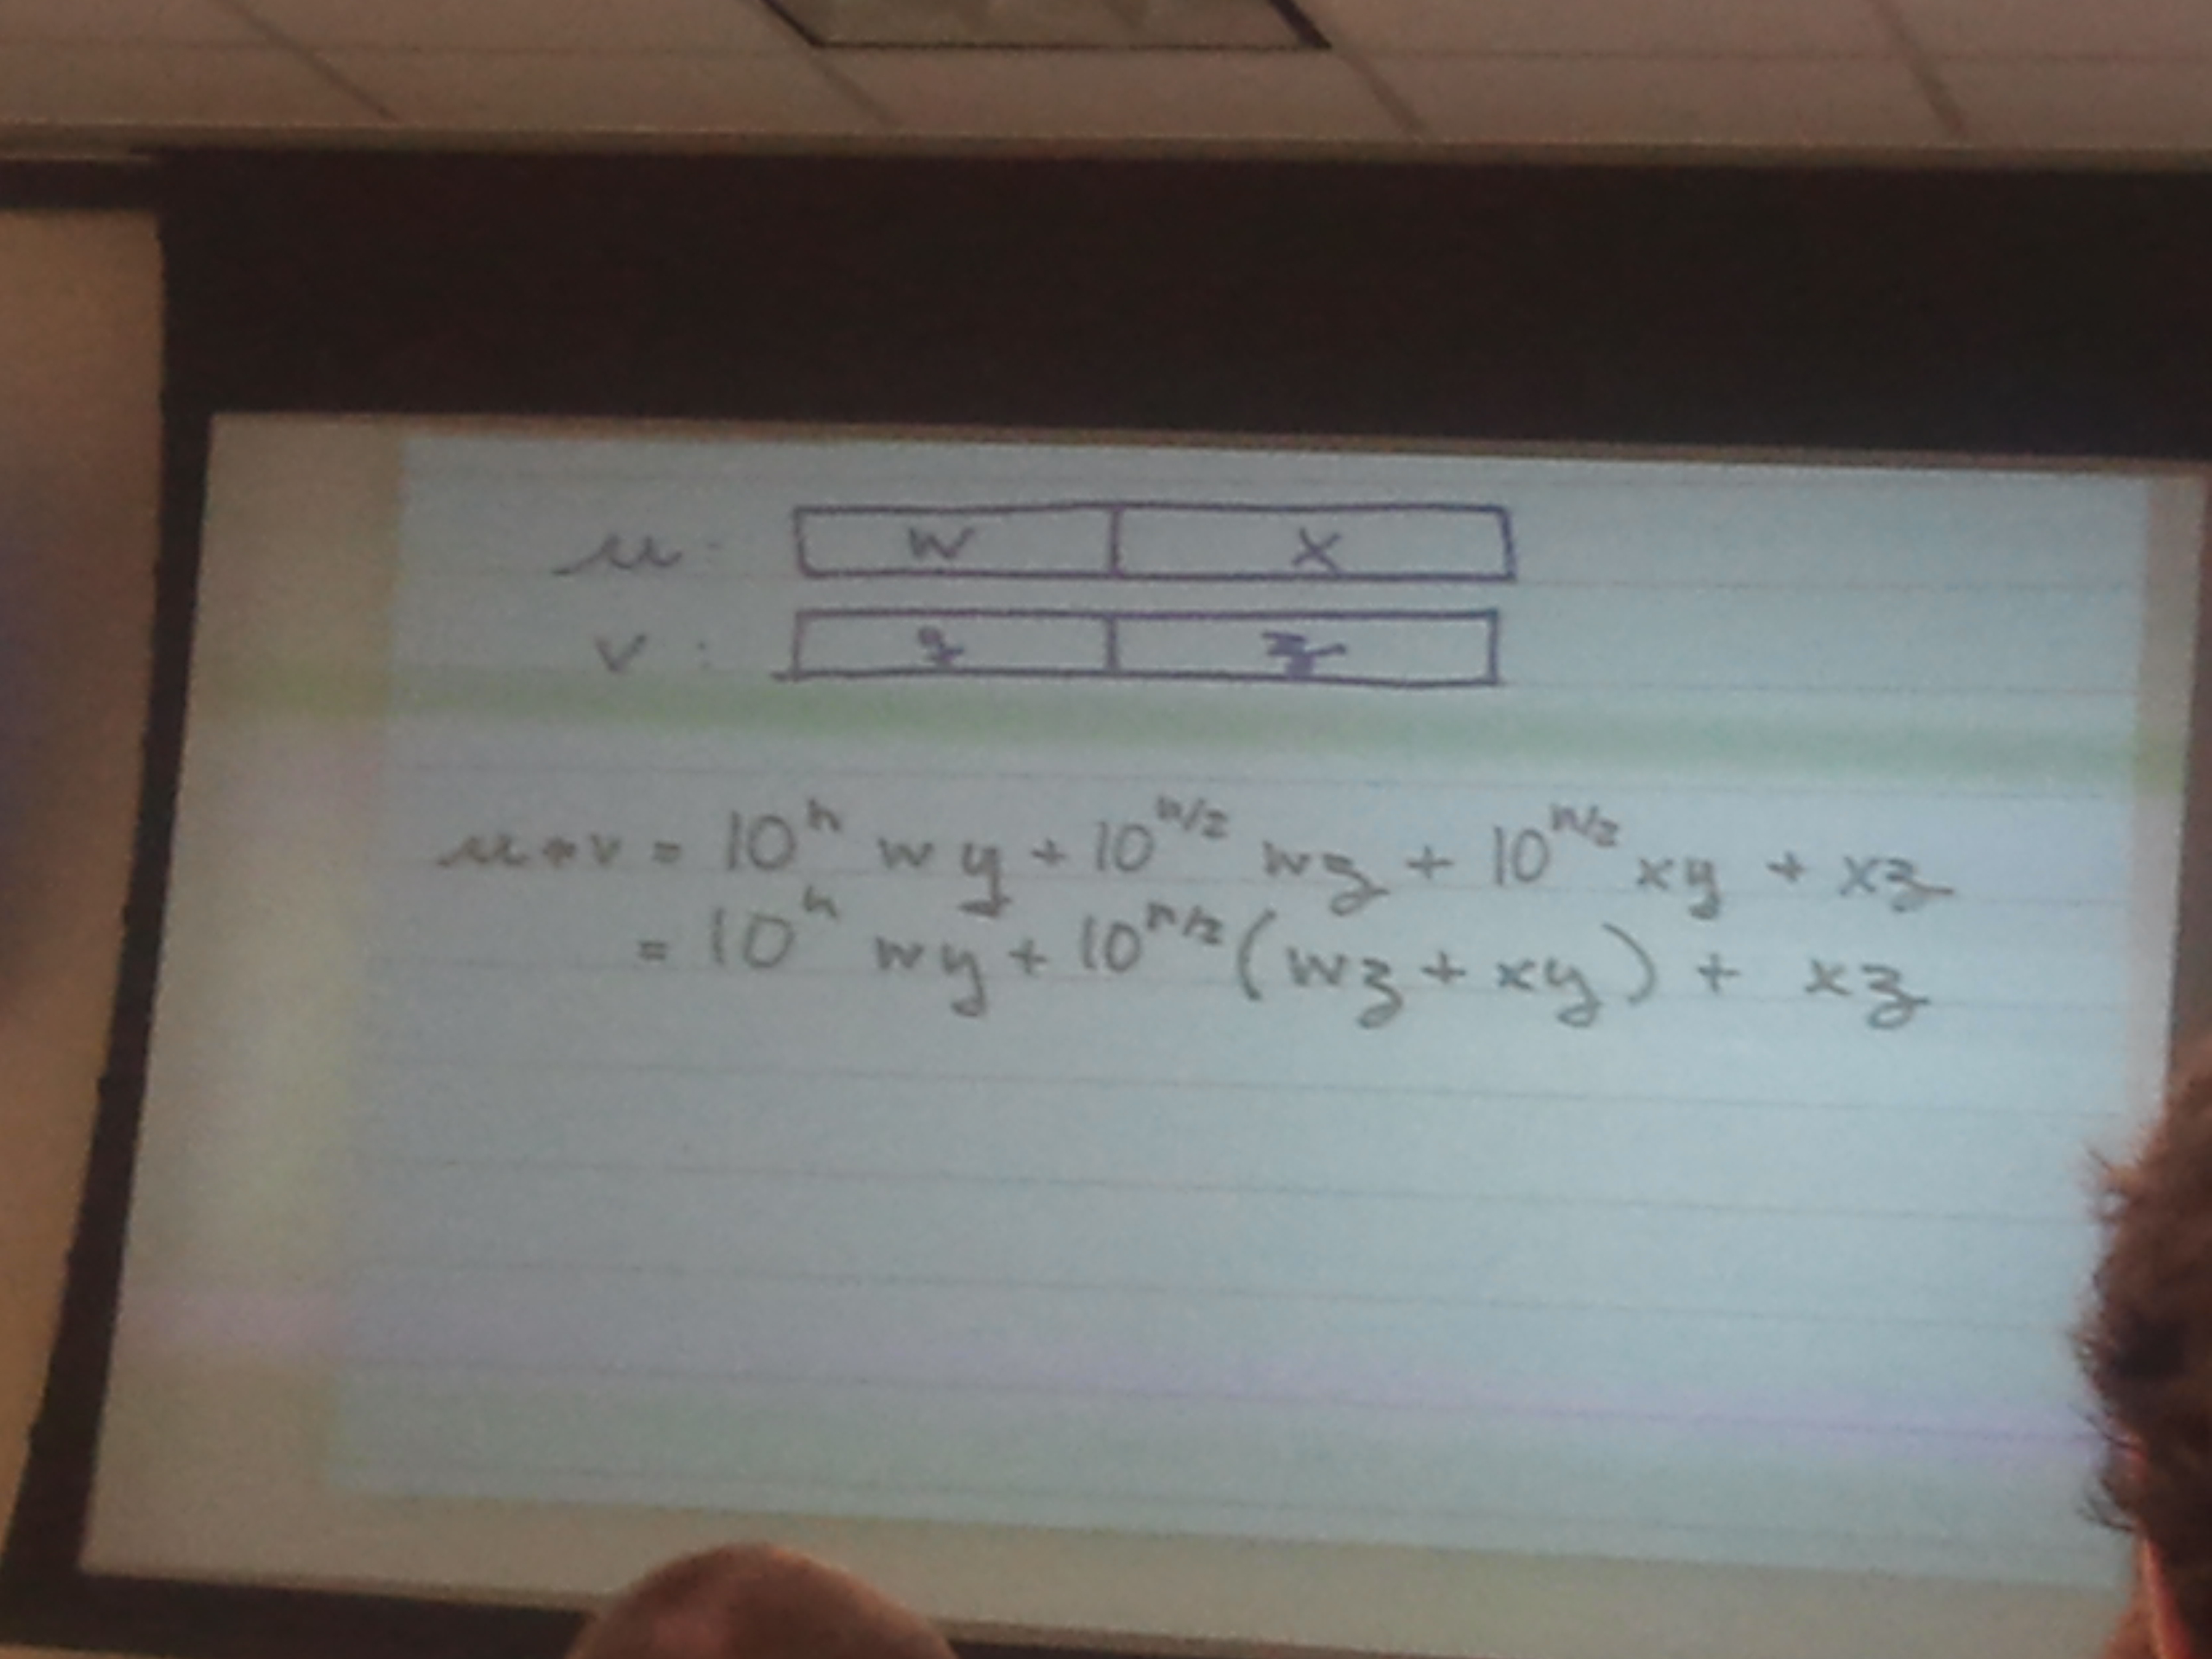 u: w x
v: y z
u * v = 10^n wy + 10^n/2 wz + 10^n/2 xy + xz
= 10^n wy + 10^n/2 (wz + xy) + xz